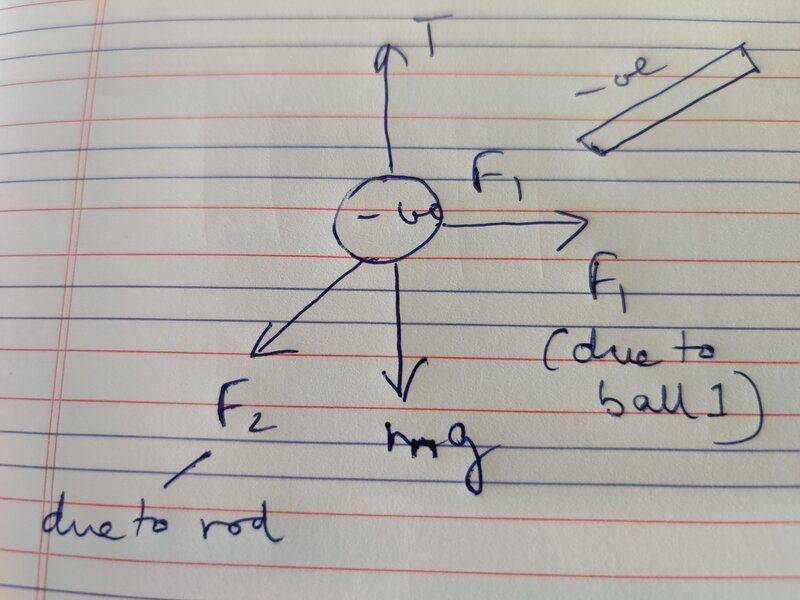 T
- ve
F1
- ve
F1
(due to
ball 1)
F2
mg
due to rod